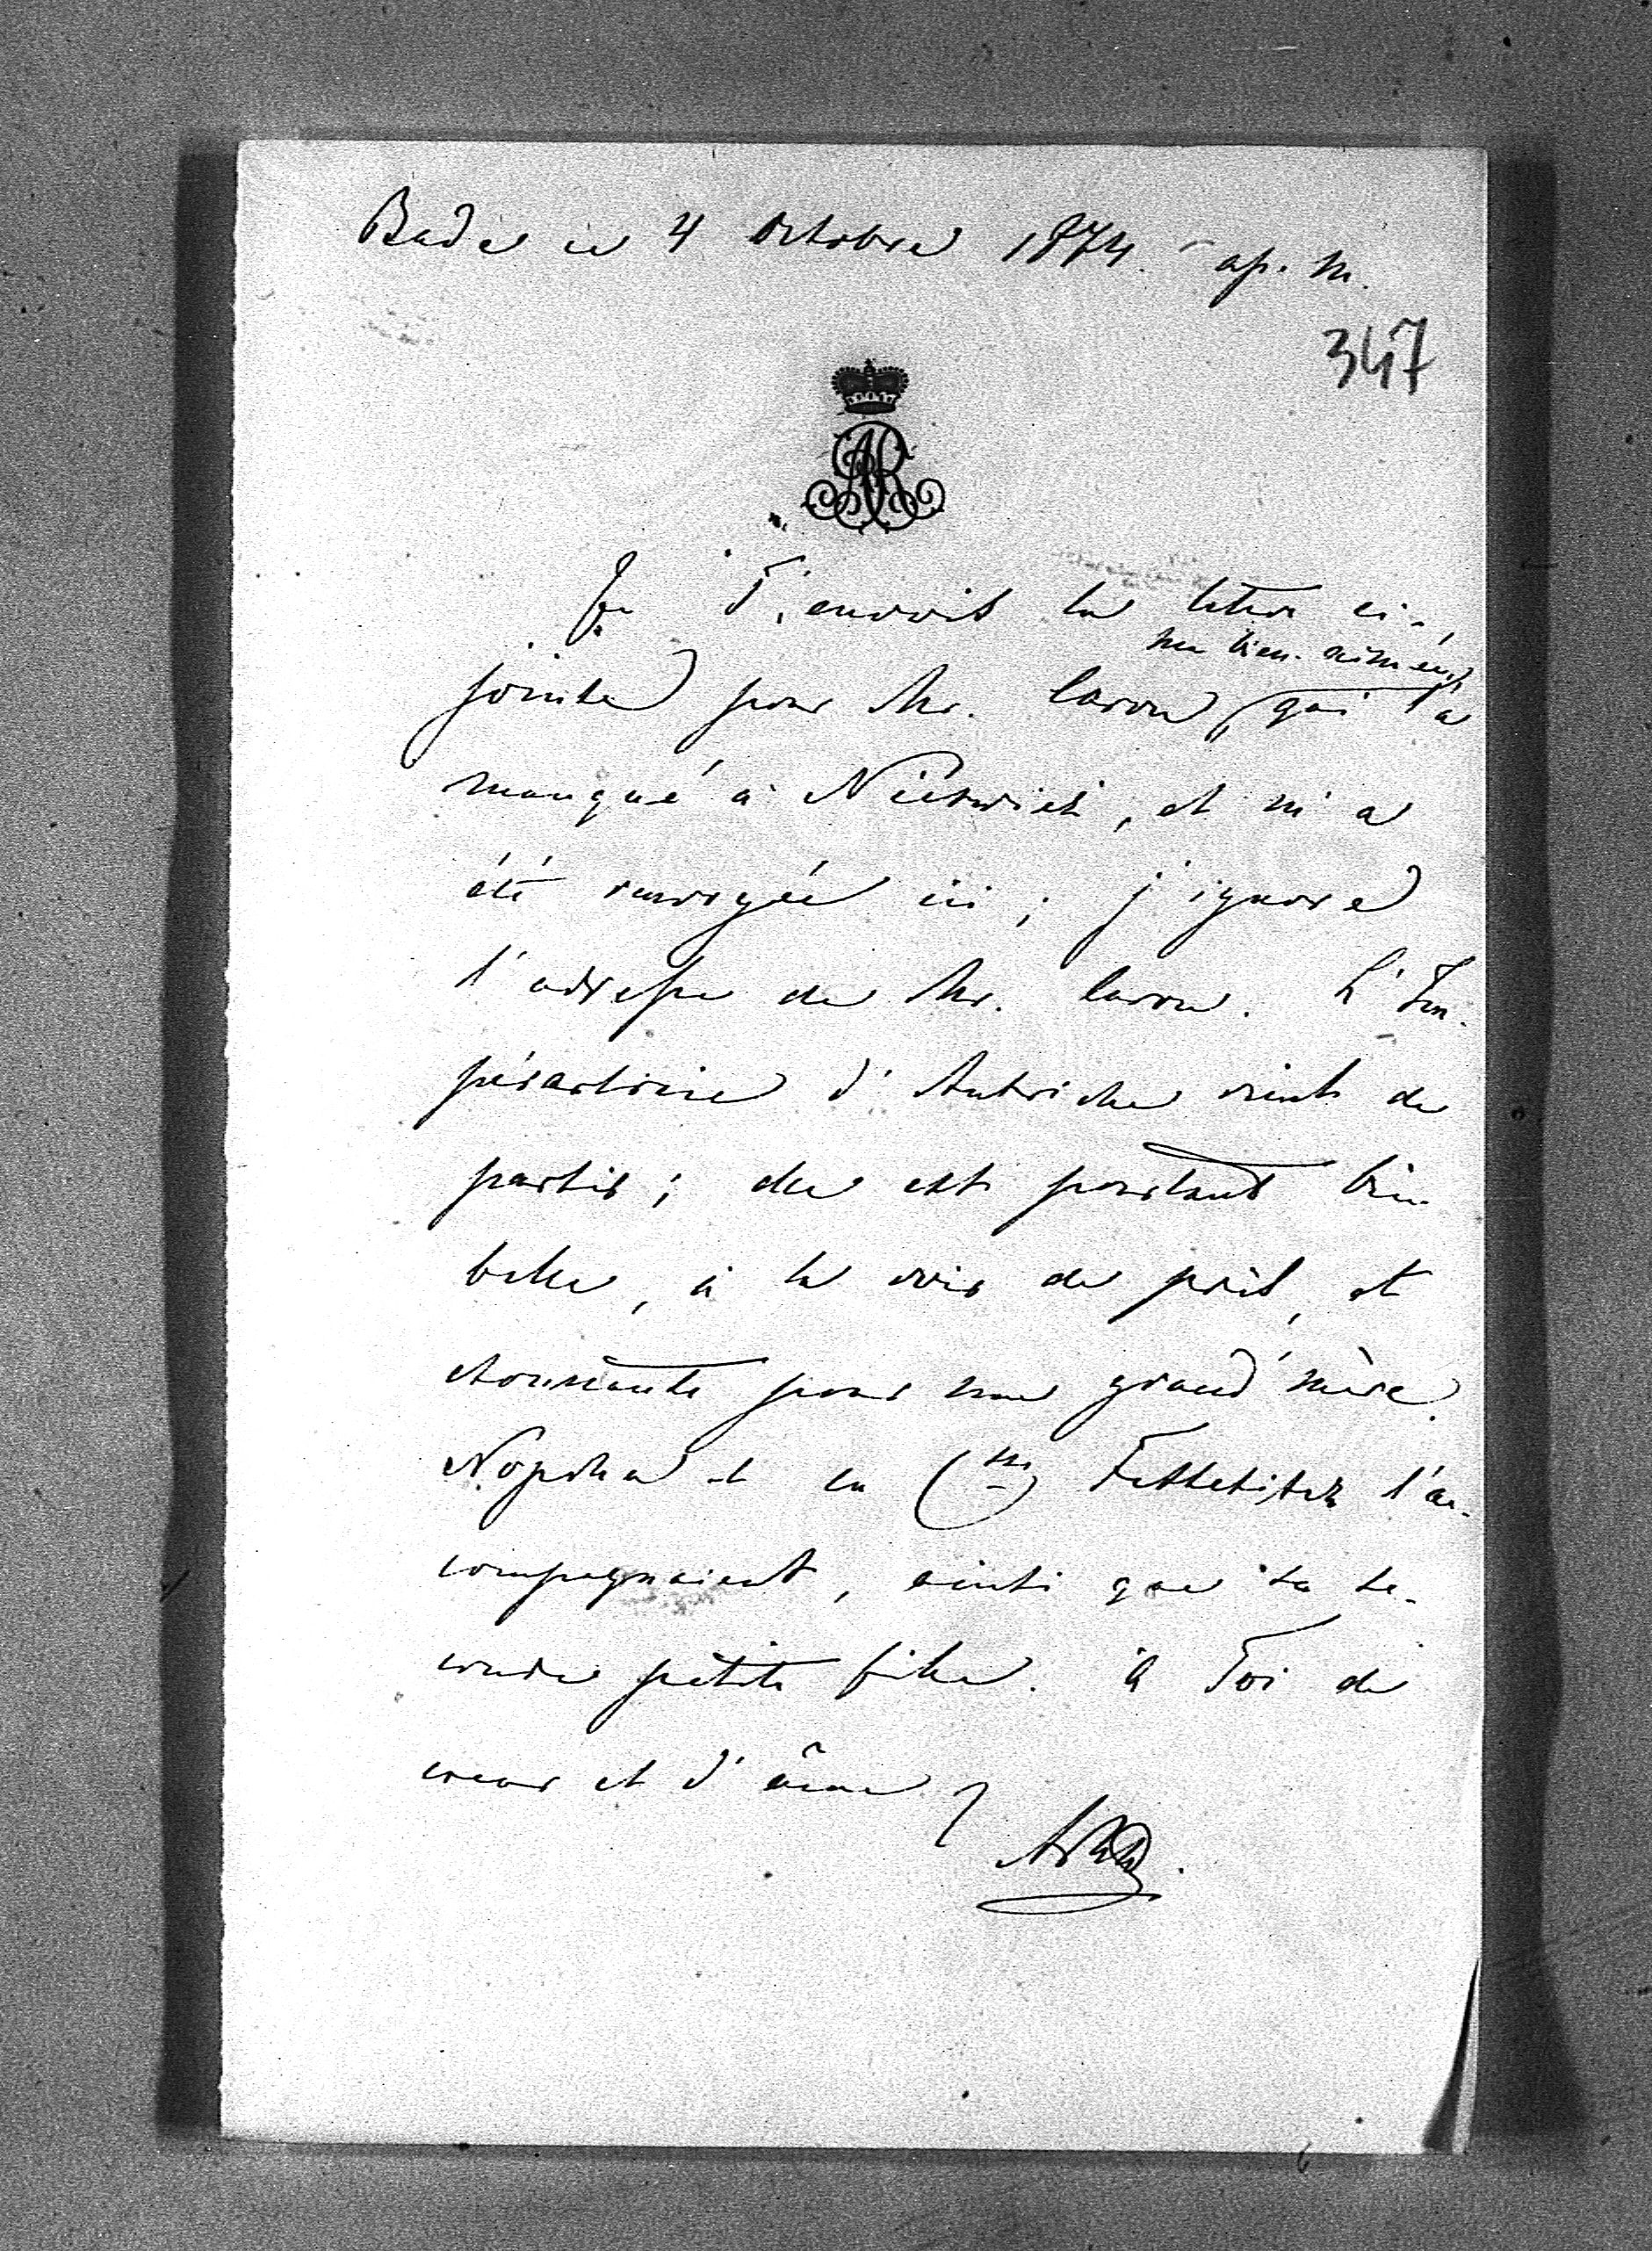 Bade ce 4 Octobre 1874. ap. m.
347
AR
Je T'envois la lettre ci-
mon bien-aimé,
jointe pour Mr. Caron, qui l'a
manqué à , et m'a
été renvoyée ici ; j'ignore
l'adresse de Mr. Caron. L'Im-
pératrice d'Autriche vient de
partir ; elle est pourtant bien
belle, à la voir de près, et
étonnante pour une grand'mère.
Nopcha et la Css Festetitz l'ac-
compagnaient, ainsi que sa se-
conde petite fille. à Toi de
coeur et d'âme